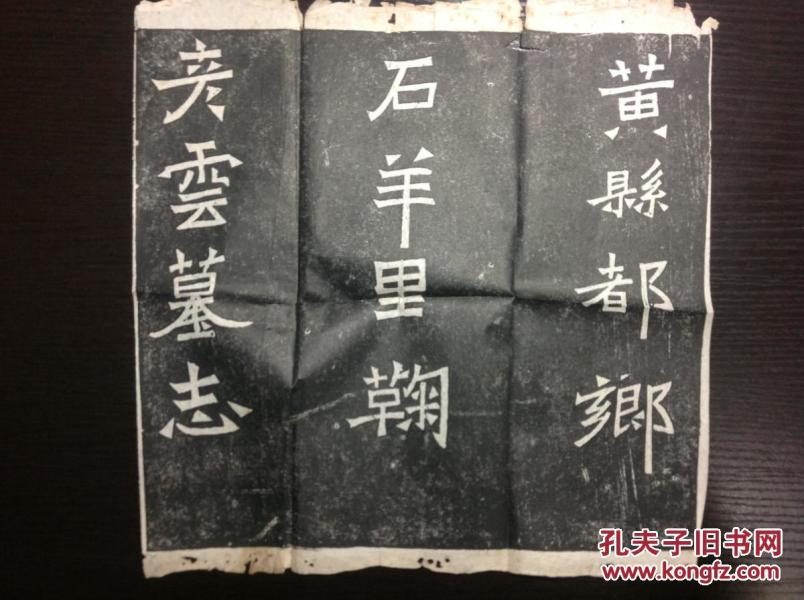 黃縣都鄉
石羊里鞠
彦雲墓志
孔夫子旧书网
www.kongfz.com